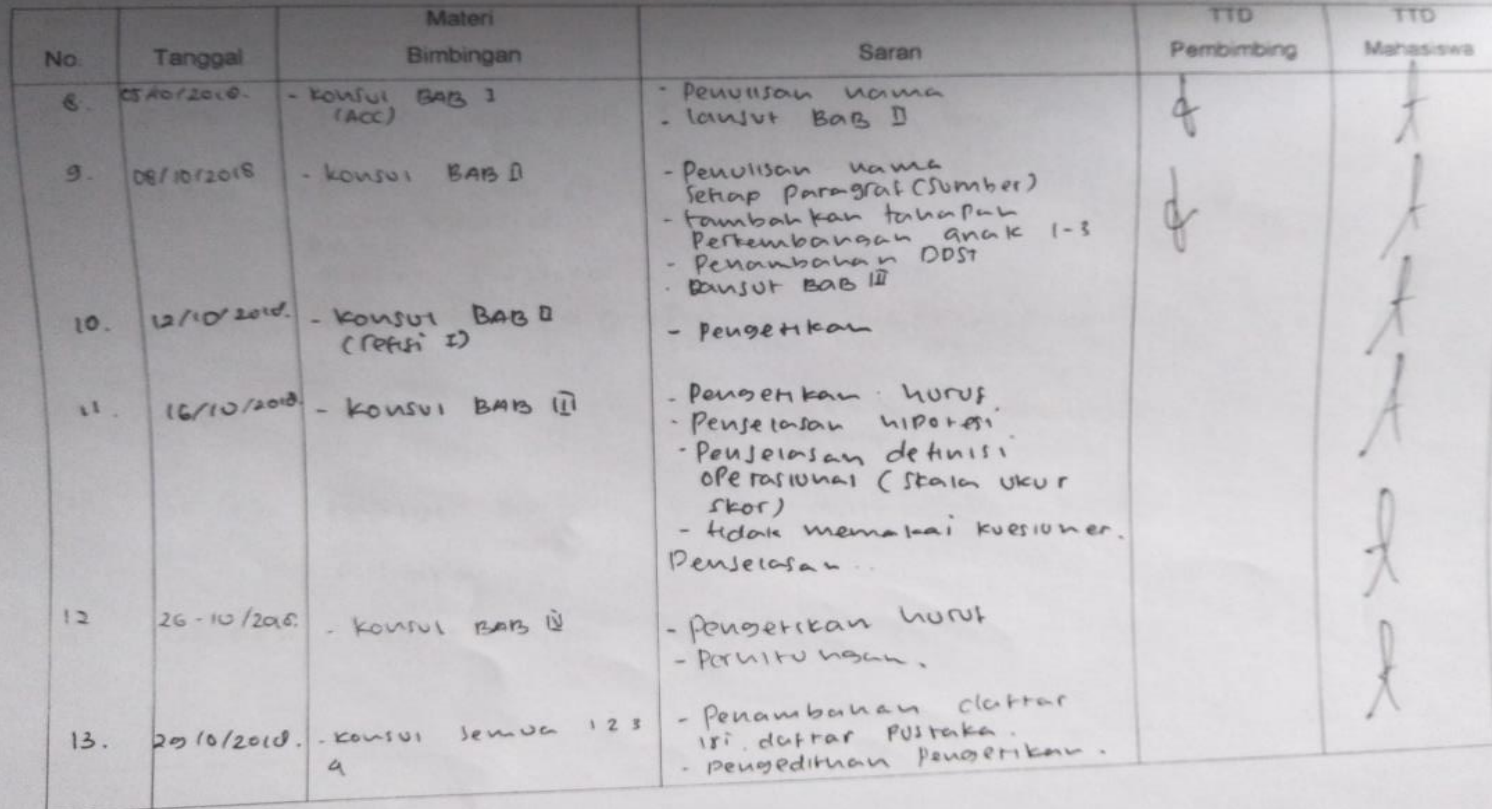 No. Tanggal Materi Bimbingan Saran TTD Pembimbing TTD Mahasiswa
8. 05/10/2018. - Konsul BAB I - Penulisan nama
(ACC) - lanjut BAB II
9. 08/10/2018 - Konsul BAB II - Penulisan nama
Setiap paragraf (Sumber)
- tambahkan tahapan
Perkembangan anak 1-3
- Penambahan DDST
- Lanjut BAB III
10. 12/10/2018. - Konsul BAB II - Pengetikan
(refisi I)
11. 16/10/2018 - Konsul BAB III - Pengetikan huruf.
- Penjelasan hipotesi
- Penjelasan definisi
operasional (Skala ukur
skor)
- tidak memakai kuesioner.
Penjelasan..
12 26-10/2018. - Konsul BAB IV - pengetikan huruf
- Perhitungan.
13. 29/10/2018. - Konsul semua 1 2 3 - Penambahan daftar
4 isi. daftar pustaka.
- pengedithan pengetikan.